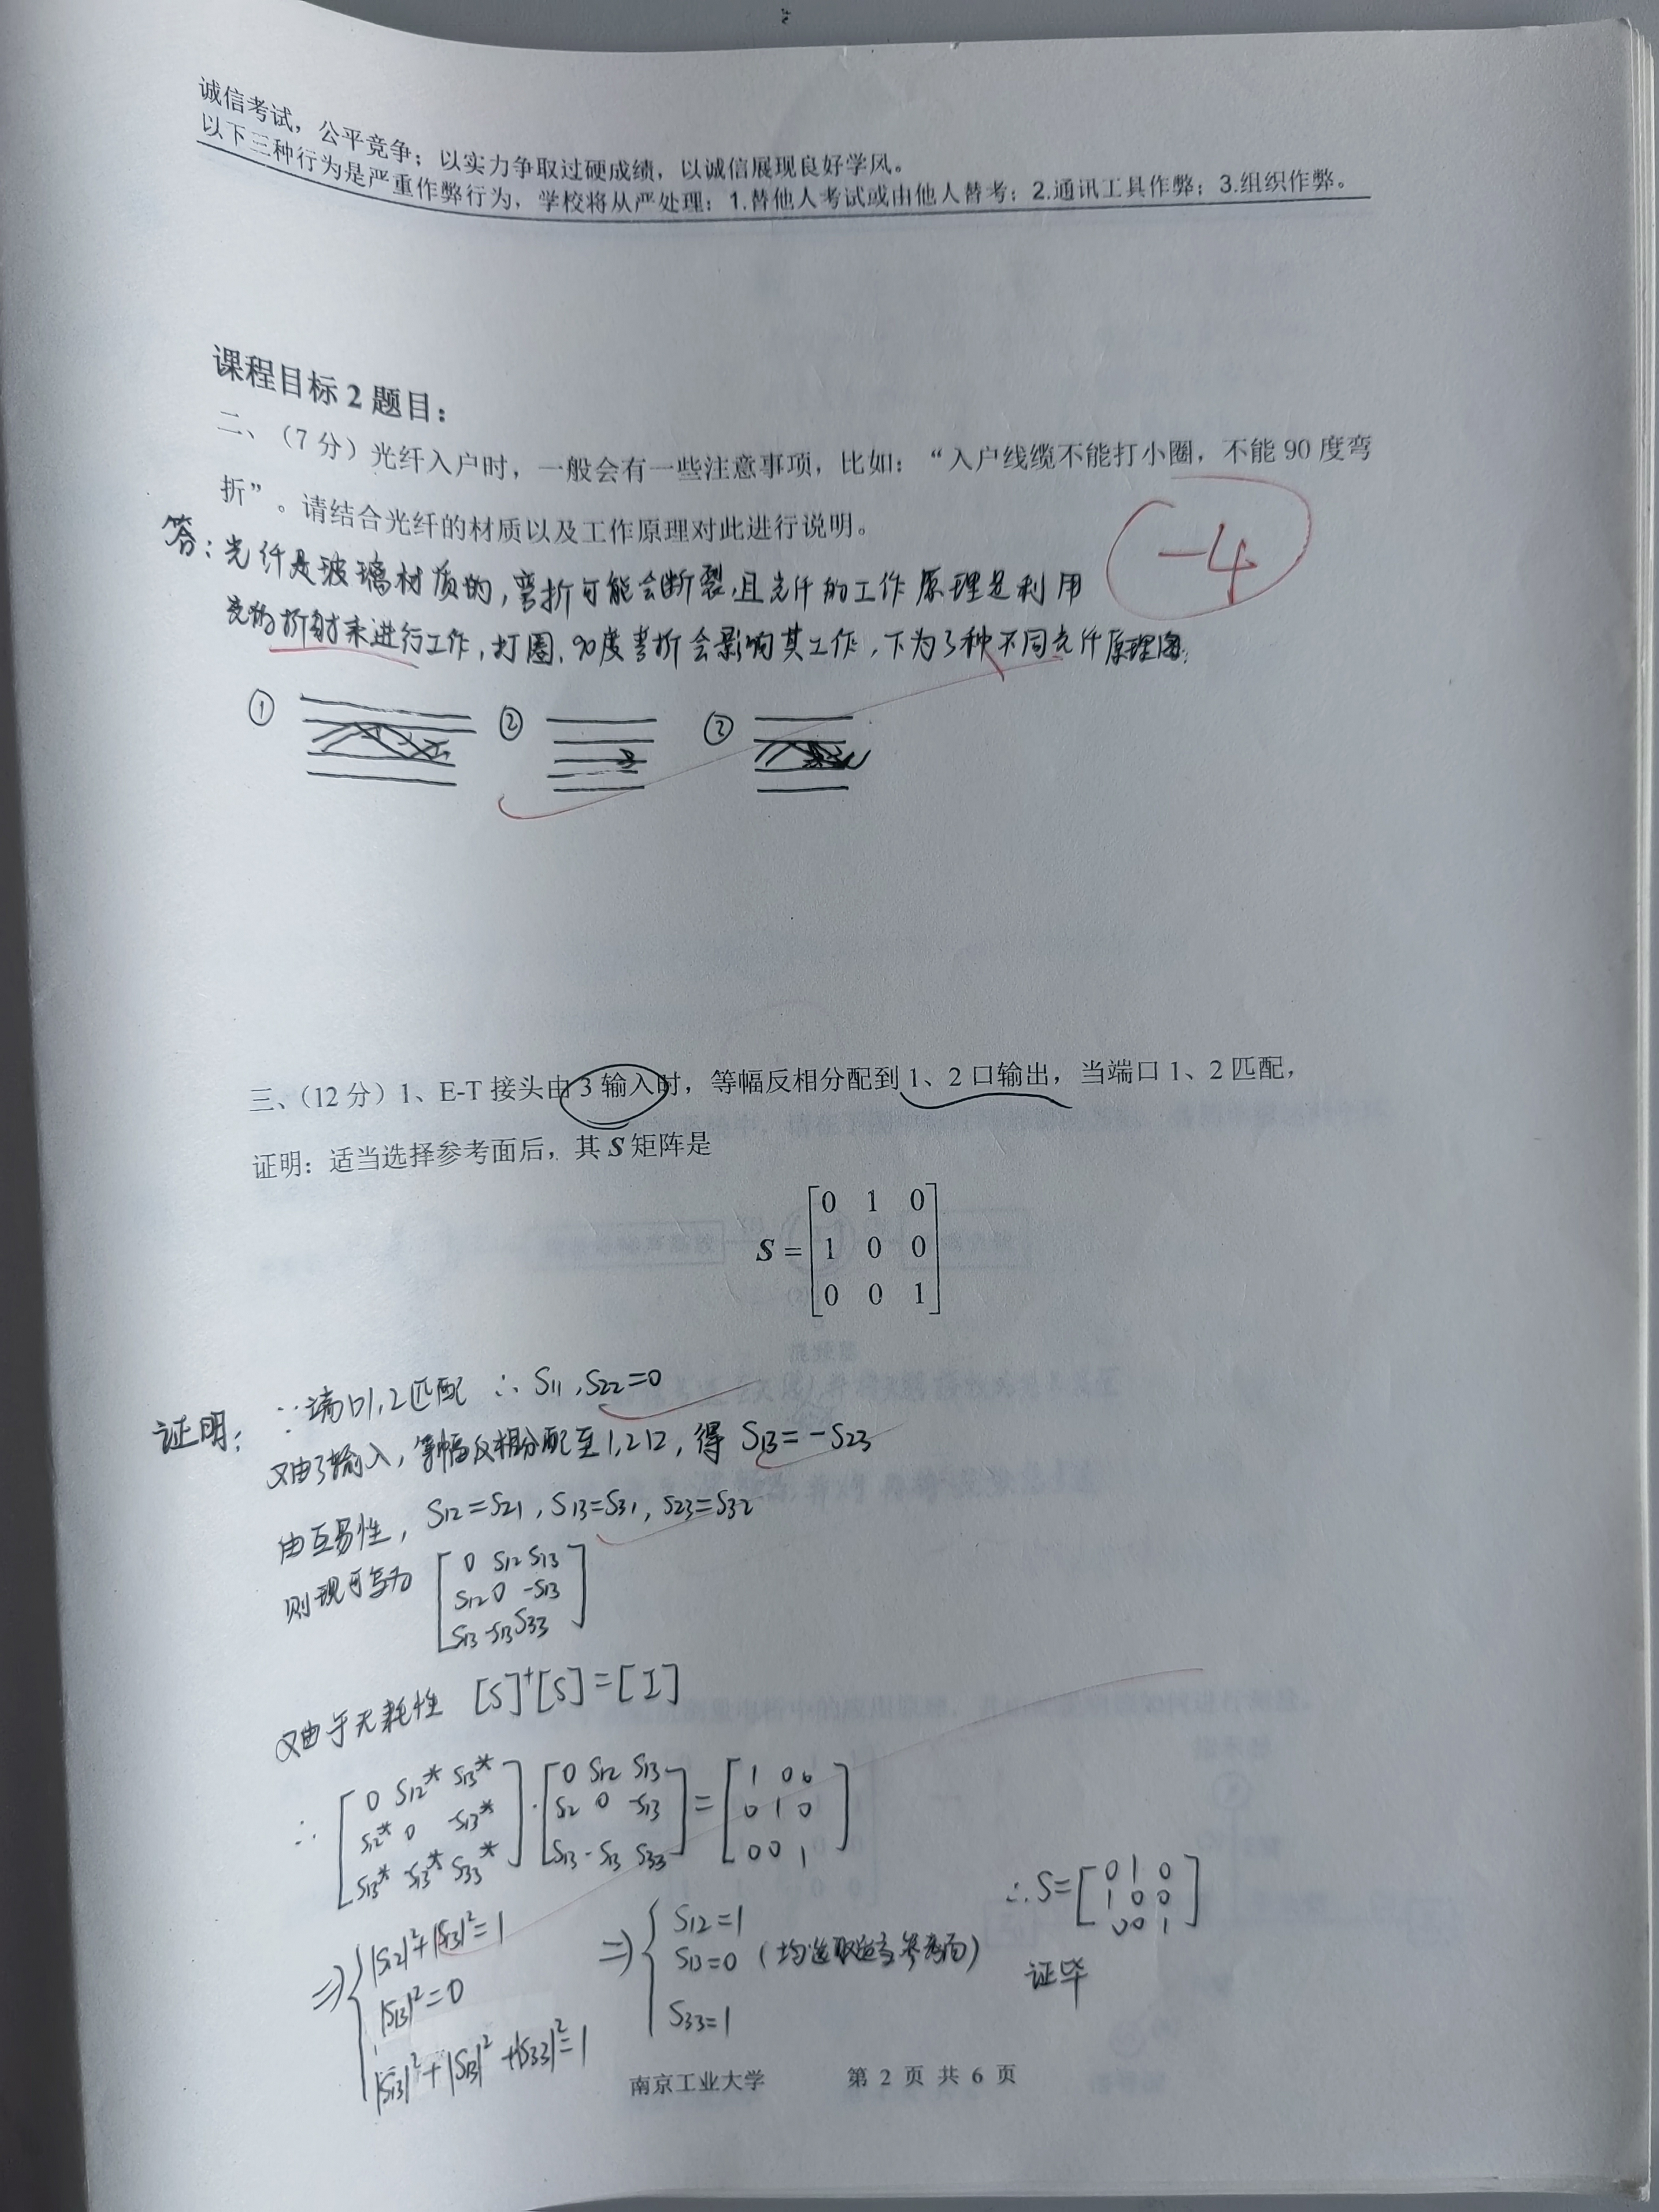 诚信考试，公平竞争；以实力争取过硬成绩，以诚信展现良好学风。
以下三种行为是严重作弊行为，学校将从严处理：1.替他人考试或由他人替考；2.通讯工具作弊；3.组织作弊。
课程目标 2 题目：
二、（7 分）光纤入户时，一般会有一些注意事项，比如：“入户线缆不能打小圈，不能 90 度弯
折”。请结合光纤的材质以及工作原理对此进行说明。
-4
答：光纤是玻璃材质的，弯折可能会断裂，且光纤的工作原理是利用
光的折射来进行工作，打圈、90度弯折会影响其工作，下为3种不同光纤原理图：
① ② ③
三、（12 分）1、E-T 接头由 3 输入时，等幅反相分配到 1、2 口输出，当端口 1、2 匹配，
证明：适当选择参考面后，其 S 矩阵是
S = [0 1 0
1 0 0
0 0 1]
证明：∵端口1,2匹配 ∴ S11,S22=0
又由3输入，等幅反相分配至1,2口，得 S13=-S23
由互易性，S12=S21，S13=S31，S23=S32
则现可写为 [0 S12 S13
S12 0 -S13
S13 -S13 S33]
又由于无耗性 [S]⁺[S]=[I]
∴ [0 S12* S13*
S12* 0 -S13*
S13* -S13* S33*]·[0 S12 S13
S12 0 -S13
S13 -S13 S33]=[1 0 0
0 1 0
0 0 1]
⇒{|S12|²+|S13|²=1
|S13|²=0
|S13|²+|S13|²+|S33|²=1
⇒{S12=1
S13=0（均选取适当参考面）
S33=1
∴S=[0 1 0
1 0 0
0 0 1]
证毕
南京工业大学 第 2 页 共 6 页